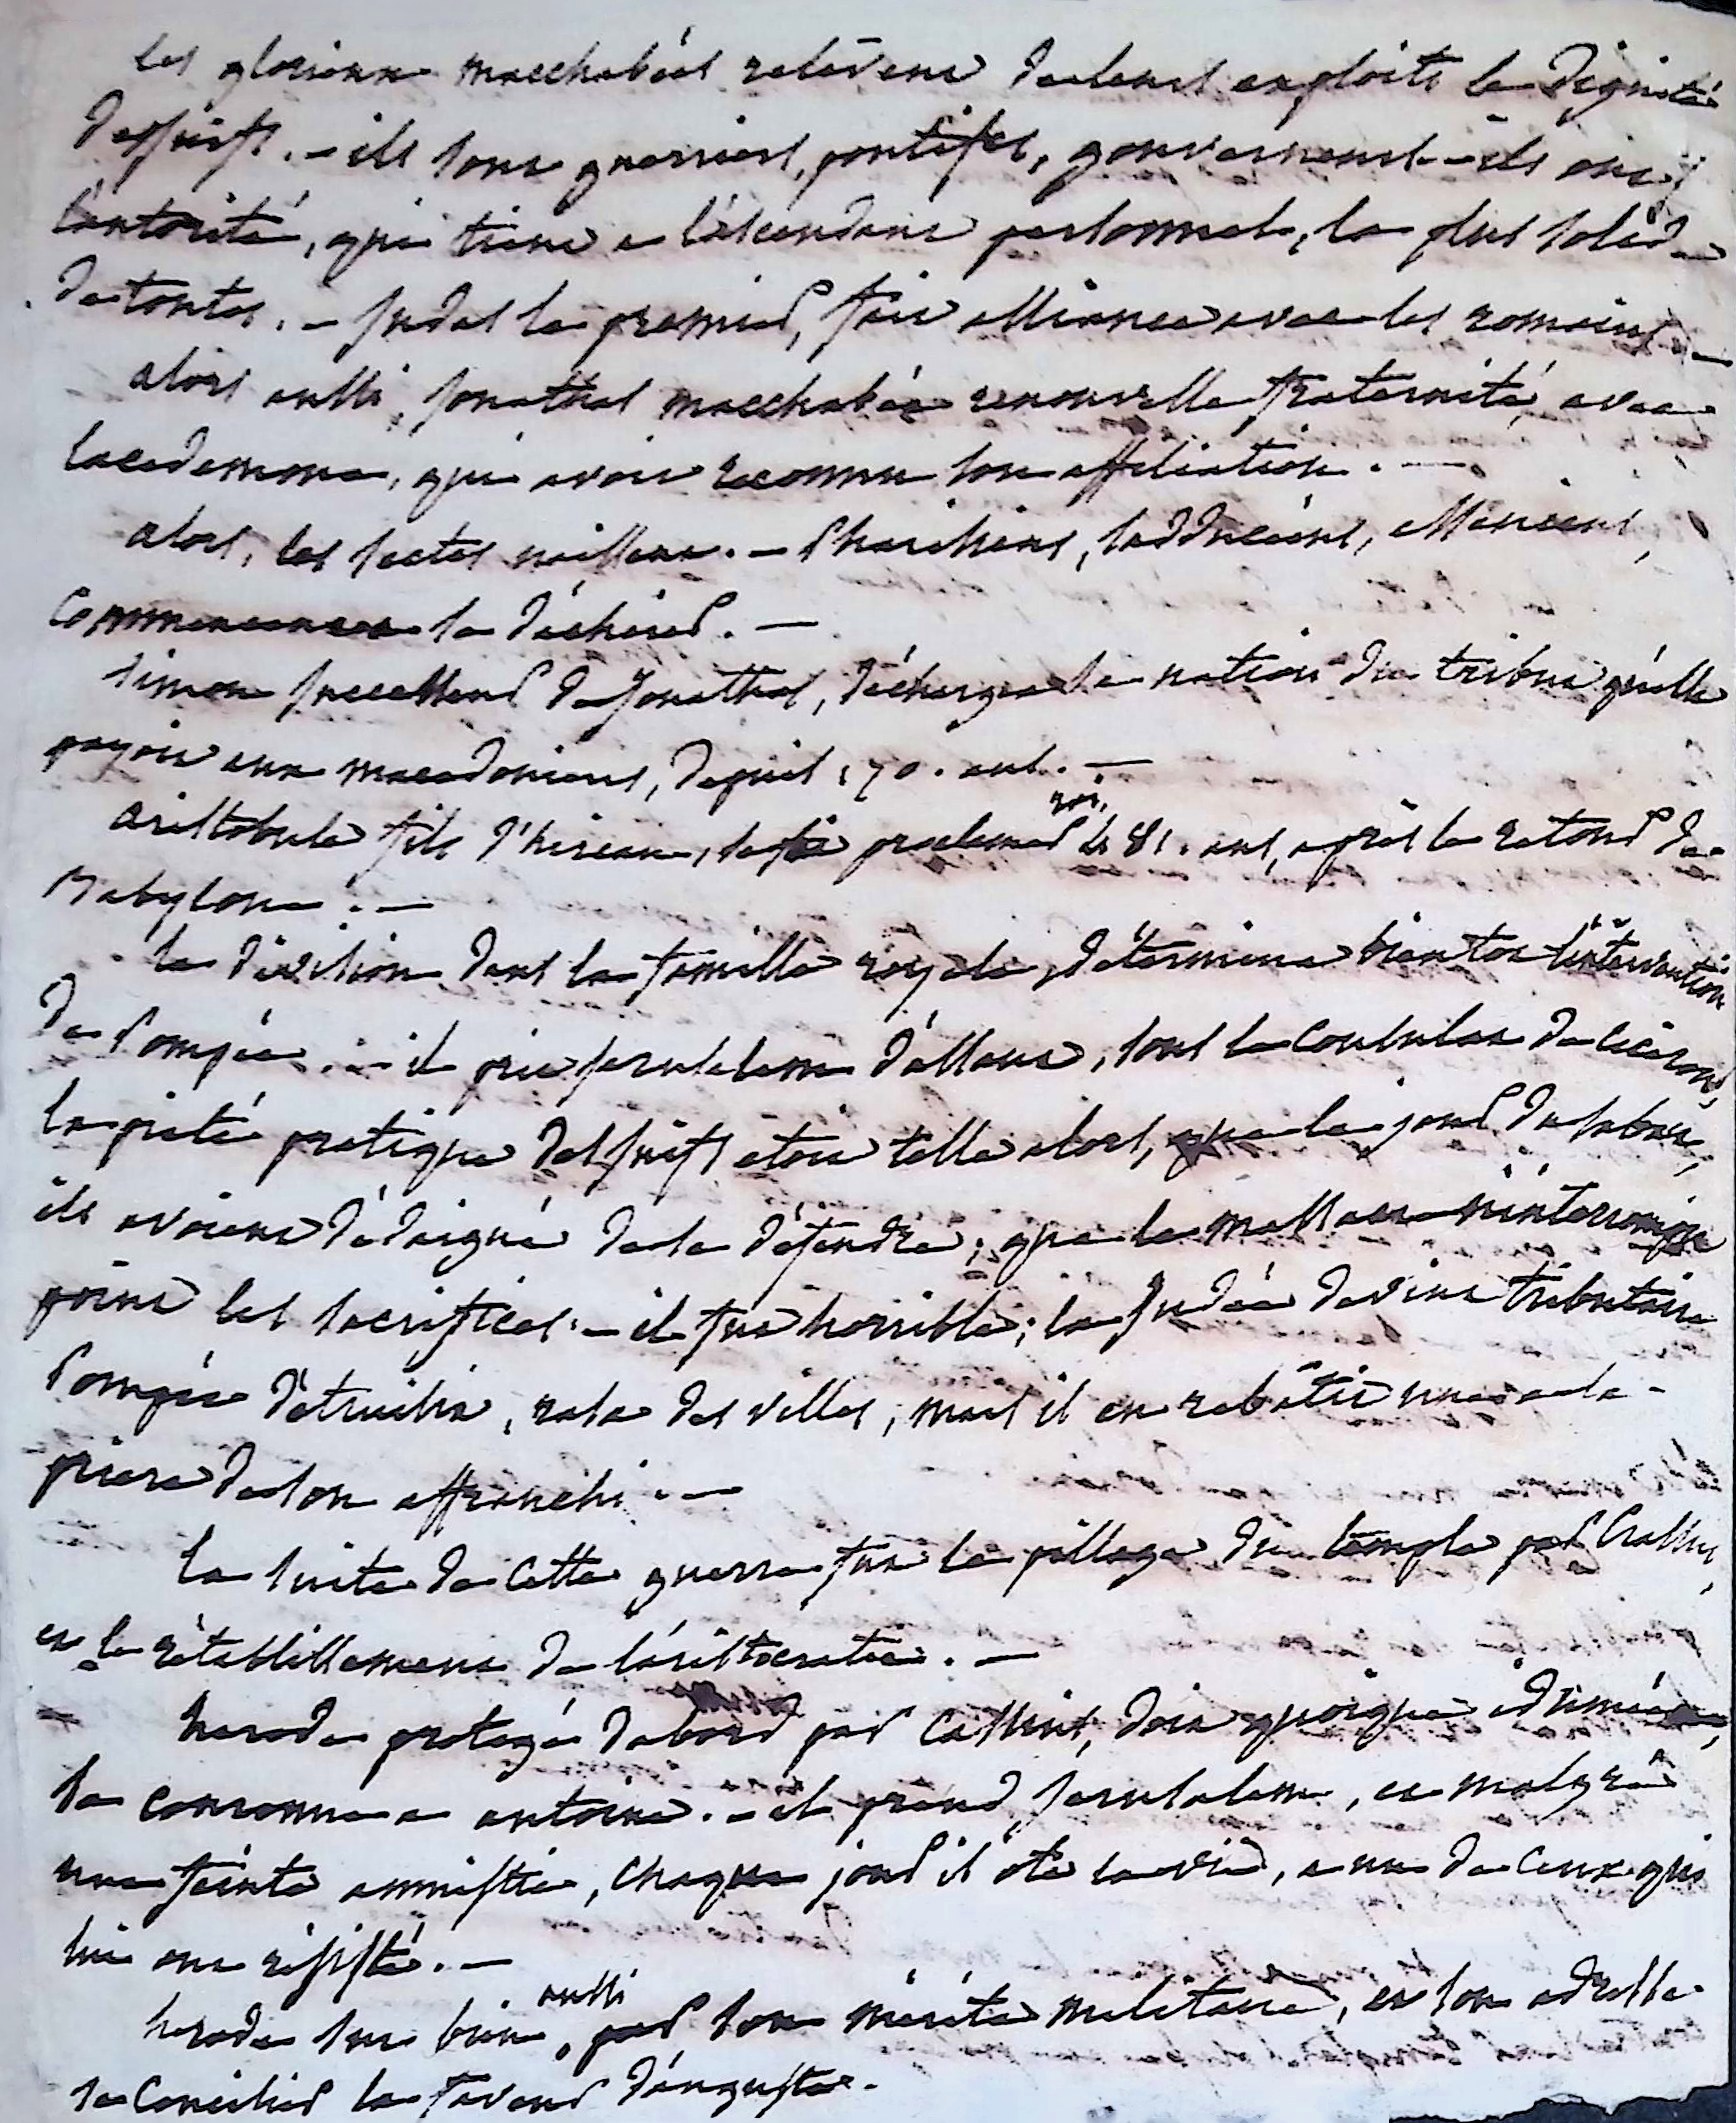 les glorieux macchabées relèvent de leurs exploits la dignité
des juifs. – ils sont guerriers, pontifes, gouverneurs – ils ont
l'autorité, qui tient a l'ascendant personnel, la plus solide
de toutes. – Judas le premier, fait alliance avec les romains –
alors aussi, Jonathas macchabée renouvelle fraternité, avec
lacedemone, qui avoit reconnu son affiliation. –
alors, les sectes naissent. – Pharisiens, sadducéens, esséniens,
commencent a se déchirer. –
simon successeur de Jonathas, déchargea la nation du tribut qu'elle
payoit aux macedoniens, depuis 170. ans. –
aristobule fils d'hircan, se fit proclamer roi, 481. ans, après le retour de
Babylone. –
la division dans la famille royale, détermina bientot l'intervention
de Pompée. – il prit Jerusalem d'assaut, sous le consulat de Ciceron,
la piété pratique des juifs etoit telle alors, que le jour du sabat,
ils avoient dédaigné de se défendre; que le massacre n'interrompit
point les sacrifices. – il fut horrible; la Judée devint tributaire
Pompée détruisit, rasa des villes, mais il en rebâtit une a la
priere de son affranchi. –
la suite de cette guerre fut le pillage du temple par Crassus,
et le rétablissement de l'aristocratie. –
herode protegé dabord par Cassius, doit quoique iduméen,
sa couronne a antoine. – il prend Jerusalem, et malgré
une feinte amnistie, chaque jour il ôte la vie, a un de ceux qui
lui ont résisté. –
herode sut bien aussi, par son mérite militaire, et son adresse
se concilier la faveur d'auguste.